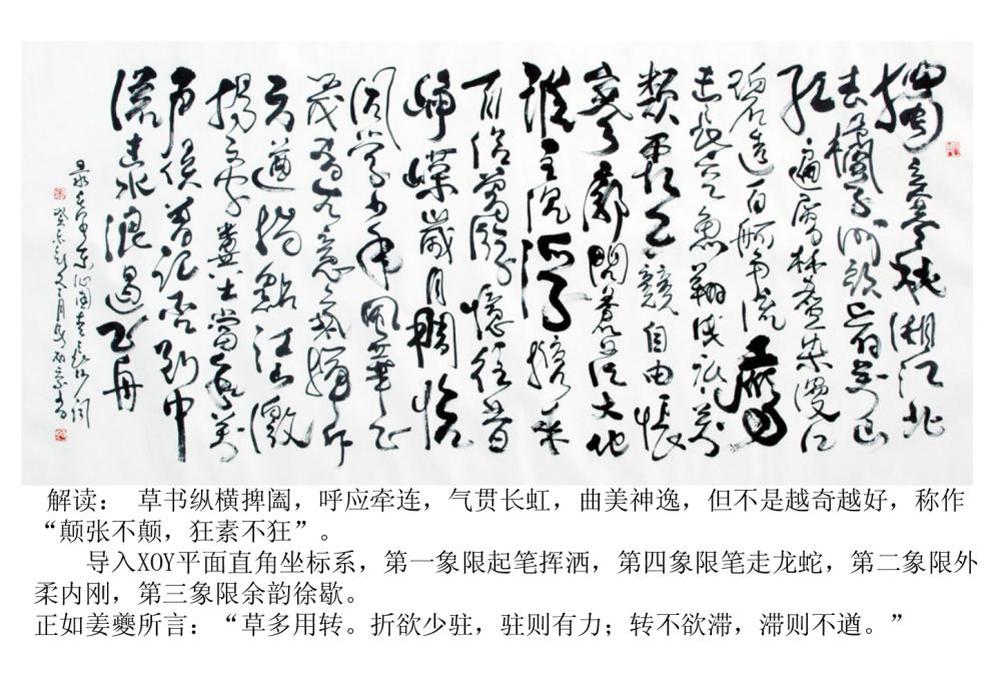 獨立寒秋湘江北
去橘子洲頭看萬山
紅遍層林盡染漫江
碧透百舸爭流鷹
击長空魚翔淺底萬
類霜天競自由悵
寥廓問蒼茫大地
誰主沉浮攜來
百侶曾游憶往昔
崢嶸歲月稠恰
同學少年風華正
茂書生意氣揮斥
方遒指點江山激
揚文字糞土當年萬
户侯曾記否到中
流击水浪遏飛舟
沁園春長沙詞
解读： 草书纵横捭阖，呼应牵连，气贯长虹，曲美神逸，但不是越奇越好，称作
“颠张不颠，狂素不狂”。
导入XOY平面直角坐标系，第一象限起笔挥洒，第四象限笔走龙蛇，第二象限外
柔内刚，第三象限余韵徐歇。
正如姜夔所言：“草多用转。折欲少驻，驻则有力；转不欲滞，滞则不遒。”